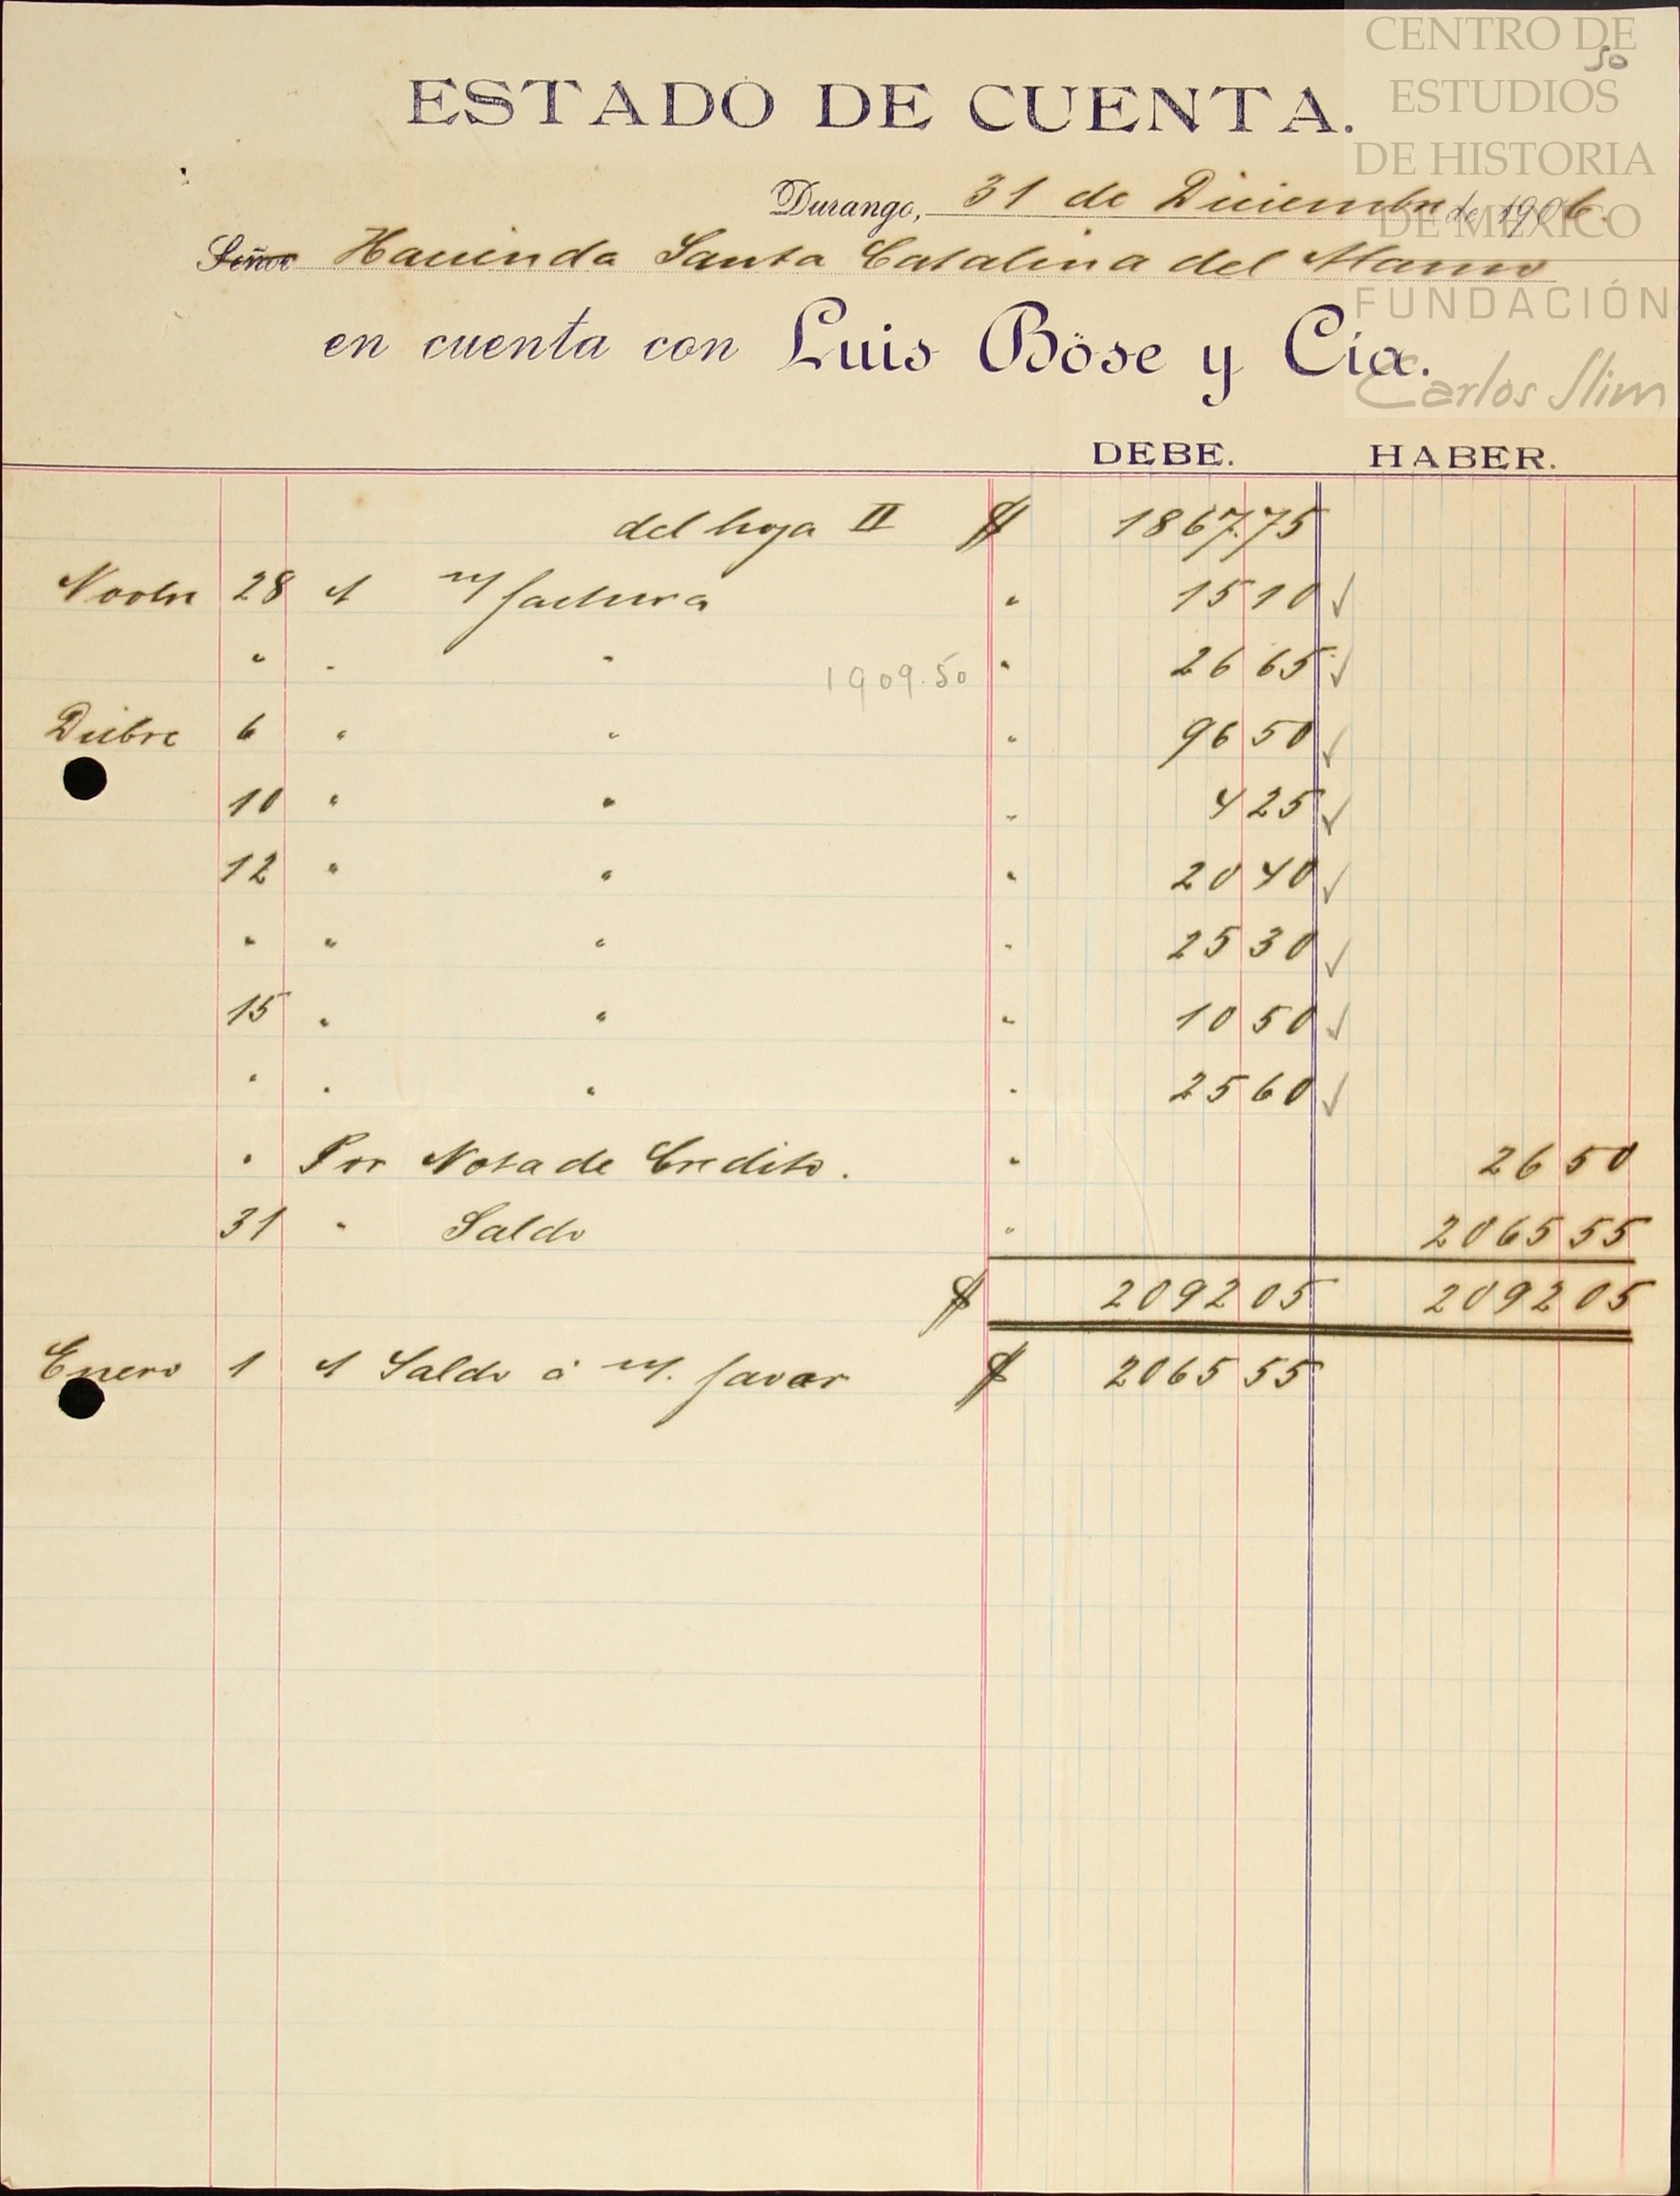 CENTRO DE
ESTUDIOS
DE HISTORIA
DE MÉXICO
FUNDACIÓN
Carlos Slim
50
ESTADO DE CUENTA.
Durango, 31 de Diciembre de 1906.
Señor Hacienda Santa Catalina del Alamo
en cuenta con Luis Böse y Cía.
DEBE. HABER.
del hoja II $ 1867.75
Novbre 28 A n/ factura " 15 10 ✓
" " " 1909.50 " 26 65 ✓
Dicbre 6 " " " 96 50 ✓
10 " " " 4 25 ✓
12 " " " 20 40 ✓
" " " " 25 30 ✓
15 " " " 10 50 ✓
" " " " 25 60 ✓
" Por Nota de Credito. " 26 50
31 " Saldo " 2065 55
$ 2092 05 2092 05
Enero 1 A Saldo á n/. favor $ 2065 55